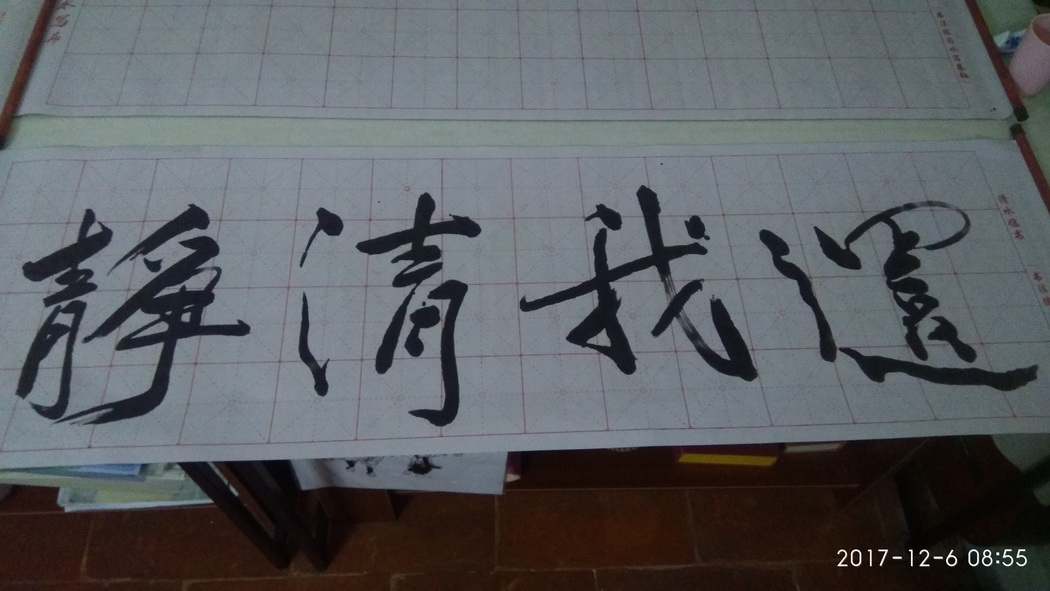 還我清靜
2017-12-6 08:55